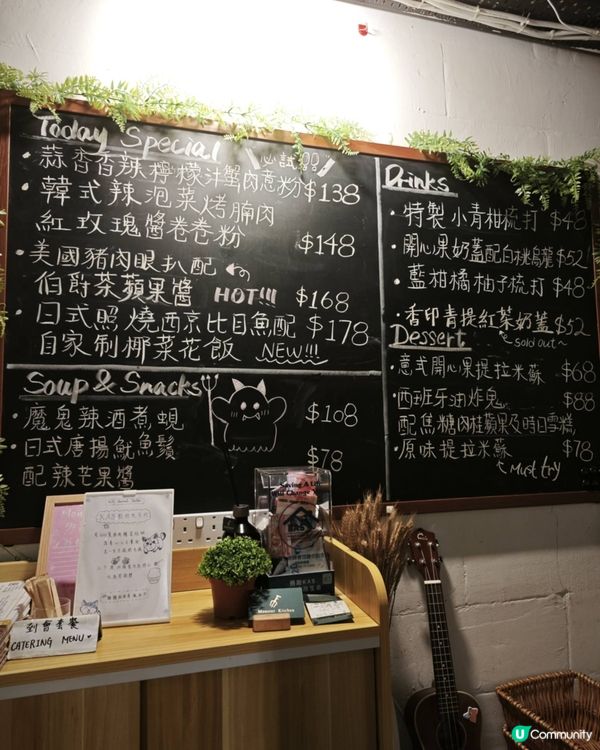 Today Special
必試!!!
・蒜香香辣檸檬汁蟹肉意粉 $138
・韓式辣泡菜烤腩肉
紅玫瑰醬卷卷粉 $148
・美國豬肉眼扒配
伯爵茶蘋果醬 HOT!!! $168
・日式照燒西京比目魚配 $178
自家制椰菜花飯 NEW!!!
Soup & Snacks
・魔鬼辣酒煮蜆 $108
・日式唐揚魷魚鬚 $78
配辣芒果醬
Drinks
・特製小青柑梳打 $48
・開心果奶蓋配白桃烏龍 $52
・藍柑橘柚子梳打 $48
・香印青提紅茶奶蓋 $52
sold out~
Dessert
・意式開心果提拉米蘇 $68
・西班牙油炸鬼 $88
配焦糖肉桂蘋果及時日雪糕
・原味提拉米蘇 $78
Must try
Saving A Life
Will Change
到會套餐
CATERING MENU
U Community